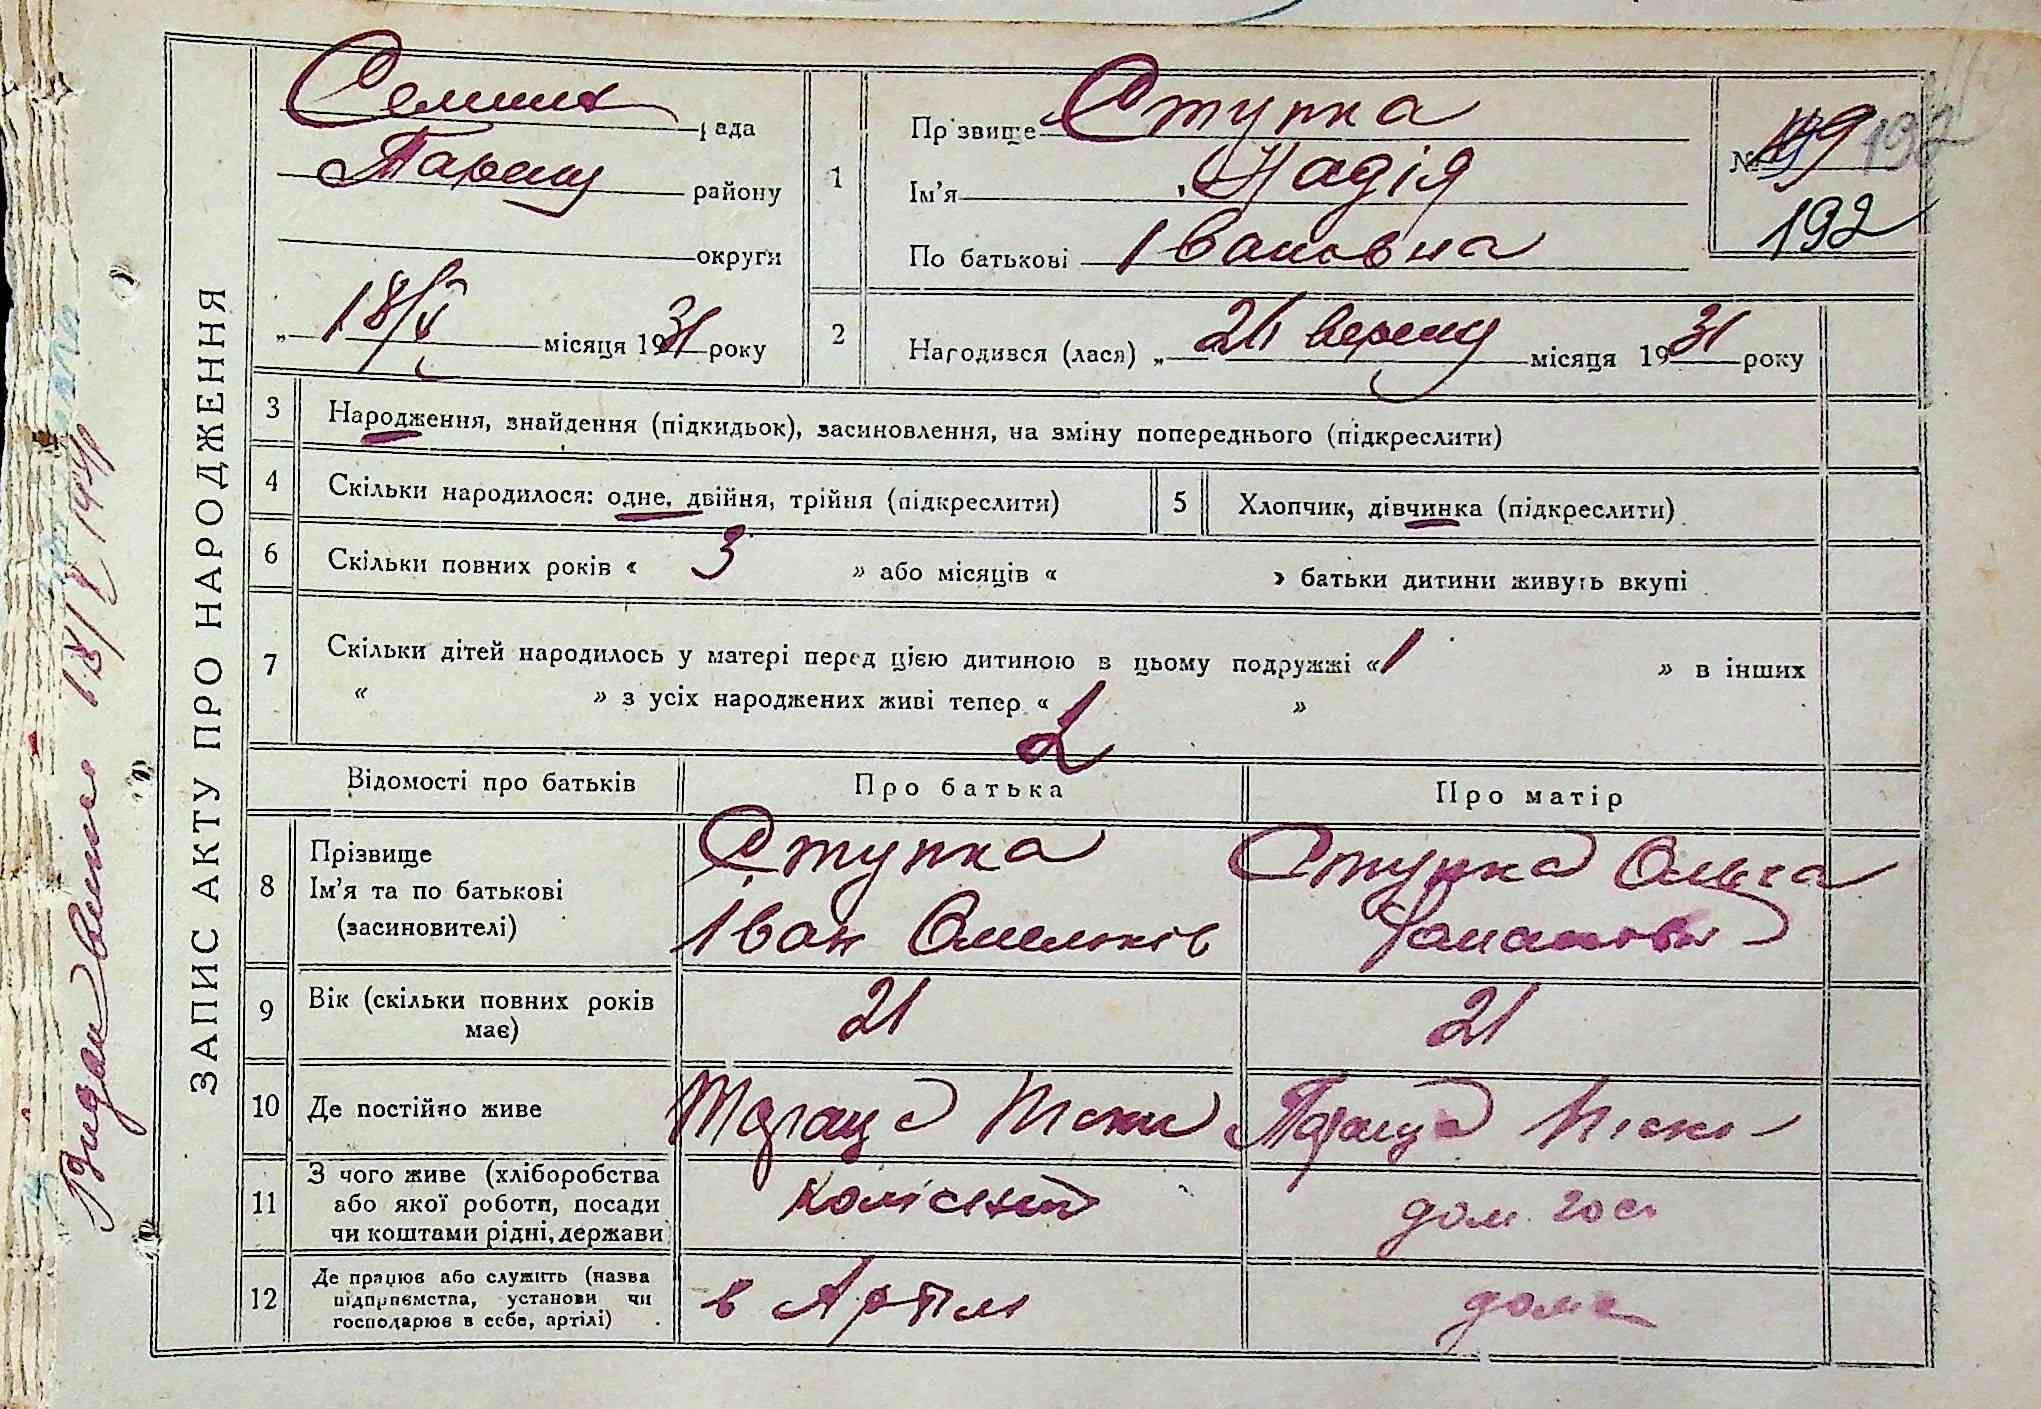 ЗАПИС АКТУ ПРО НАРОДЖЕННЯ
Селищ рада
Таращ району
округи
„ 18/V місяця 1931 року
1 Прізвище Ступка
Ім'я Надія
По батькові Івановна
№ 192
192
2 Народився (лася) „ 21 вересня місяця 1931 року
3 Народження, знайдення (підкидьок), засиновлення, на зміну попереднього (підкреслити)
4 Скільки народилося: одне, двійня, трійня (підкреслити) 5 Хлопчик, дівчинка (підкреслити)
6 Скільки повних років « 3 » або місяців « » батьки дитини живуть вкупі
7 Скільки дітей народилось у матері перед цією дитиною в цьому подружжі « 1 » в інших
« » з усіх народжених живі тепер « 2 »
Відомості про батьків Про батька Про матір
8 Прізвище Ім'я та по батькові (засновителі)
Ступка Іван Омельков
Ступка Ольга
9 Вік (скільки повних років має) 21 21
10 Де постійно живе Тараща Піски Тараща Піски
11 З чого живе (хліборобства або якої роботи, посади чи коштами рідні, держави
дом. гос.
12 Де працює або служить (назва підприємства, установи чи господарює в себе, артілі)
в Артілі дома